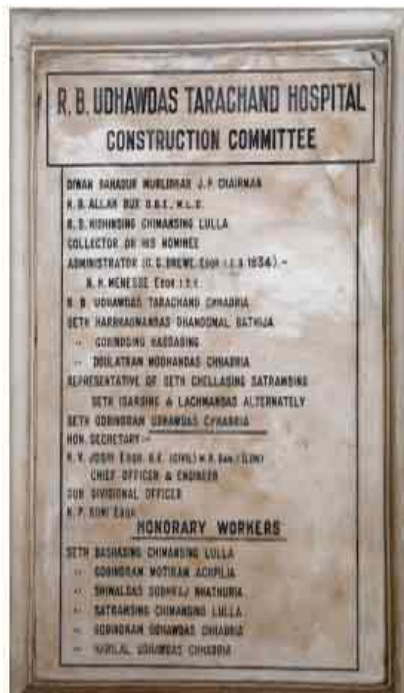 R. B. UDHAWDAS TARACHAND HOSPITAL
CONSTRUCTION COMMITTEE
DIWAN BAHADUR MURLIDHAR J. P. CHAIRMAN
K. B. ALLAH BUX O.B.E., M.L.C.
R. S. RIJHINSING CHIMANSING LULLA
COLLECTOR OR HIS NOMINEE
ADMINISTRATOR (C. G. BREWE. ESQR I.S.E 1934).-
N. H. MENESSE ESQR I.S.E.
R. B. UDHAWDAS TARACHAND CHHABRIA
SETH HARBHAGWANDAS DHANOOMAL BATHIJA
" GOBINDSING HASSASING
" DOULATRAM MOOHANDAS CHHABRIA
REPRESENTATIVE OF SETH CHELLASING SATRAMSING
SETH ISARSING & LACHMANDAS ALTERNATELY
SETH GOBINDRAM UDHAWDAS CHHABRIA
HON. SECRETARY :-
JOSHI ESQR. B.E. (CIVIL) M.R. SAN. I (LON)
CHIEF OFFICER & ENGINEER
SUB DIVISIONAL OFFICER
ESQR.
HONORARY WORKERS
SETH BASHASING CHIMANSING LULLA
" GOBINDRAM MOTIRAM
" SHIWALDAS SOBHRAJ NHATHURIA
" SATRAMSING CHIMANSING LULLA
" GOBINDRAM UDHAWDAS CHHABRIA
" UDHAWDAS CHHABRIA